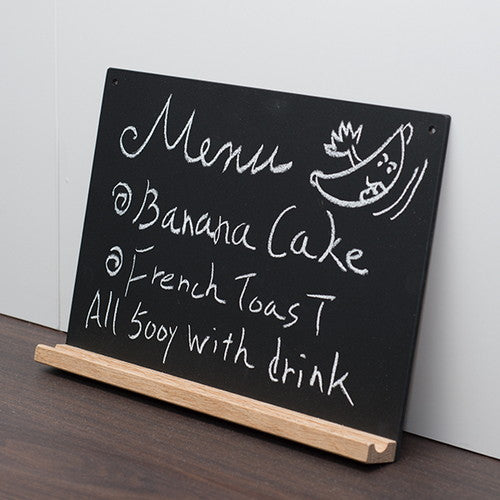 Menu
Banana Cake
French Toast
All 500y with drink